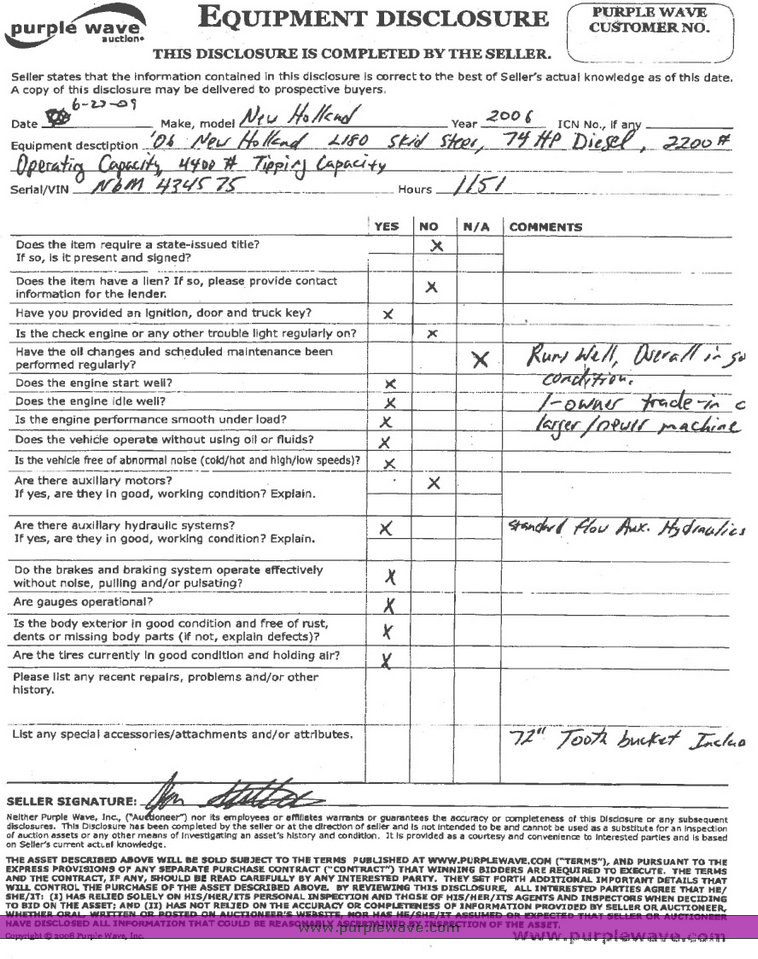 purple wave
auction
EQUIPMENT DISCLOSURE
PURPLE WAVE
CUSTOMER NO.
THIS DISCLOSURE IS COMPLETED BY THE SELLER.
Seller states that the information contained in this disclosure is correct to the best of Seller's actual knowledge as of this date.
A copy of this disclosure may be delivered to prospective buyers.
Date 6-23-09 Make, model New Holland Year 2006 ICN No., if any
Equipment desctiption '06 New Holland L180 Skid Steer, 74 HP Diesel, 2200#
Operating Capacity, 4400 # Tipping Capacity
Serial/VIN N6M 434575 Hours 1151
YES NO N/A COMMENTS
Does the item require a state-issued title? X
If so, is it present and signed?
Does the item have a lien? If so, please provide contact X
information for the lender.
Have you provided an ignition, door and truck key? X
Is the check engine or any other trouble light regularly on? X
Have the oil changes and scheduled maintenance been X Runs Well, Overall in go
performed regularly?
Does the engine start well? X condition.
Does the engine idle well? X 1-owner trade-in o
Is the engine performance smooth under load? X larger/newer machine
Does the vehicle operate without using oil or fluids? X
Is the vehicle free of abnormal noise (cold/hot and high/low speeds)? X
Are there auxillary motors? X
If yes, are they in good, working condition? Explain.
Are there auxillary hydraulic systems? X Standard Flow Aux. Hydraulics
If yes, are they in good, working condition? Explain.
Do the brakes and braking system operate effectively X
without noise, pulling and/or pulsating?
Are gauges operational? X
Is the body exterior in good condition and free of rust, X
dents or missing body parts (if not, explain defects)?
Are the tires currently in good condition and holding air? X
Please list any recent repairs, problems and/or other
history.
List any special accessories/attachments and/or attributes. 72" Tooth bucket Includ
SELLER SIGNATURE:
Neither Purple Wave, Inc., ("Auctioneer") nor its employees or affiliates warrants or guarantees the accuracy or completeness of this Disclosure or any subsequent
disclosures. This Disclosure has been completed by the seller or at the direction of seller and is not intended to be and cannot be used as a substitute for an inspection
of auction assets or any other means of investigating an asset's history and condition. It is provided as a courtesy and convenience to interested parties and is based
on Seller's current actual knowledge.
THE ASSET DESCRIBED ABOVE WILL BE SOLD SUBJECT TO THE TERMS PUBLISHED AT WWW.PURPLEWAVE.COM ("TERMS"), AND PURSUANT TO THE
EXPRESS PROVISIONS OF ANY SEPARATE PURCHASE CONTRACT ("CONTRACT") THAT WINNING BIDDERS ARE REQUIRED TO EXECUTE. THE TERMS
AND THE CONTRACT, IF ANY, SHOULD BE READ CAREFULLY BY ANY INTERESTED PARTY. THEY SET FORTH ADDITIONAL IMPORTANT DETAILS THAT
WILL CONTROL THE PURCHASE OF THE ASSET DESCRIBED ABOVE. BY REVIEWING THIS DISCLOSURE, ALL INTERESTED PARTIES AGREE THAT HE/
SHE/IT: (I) HAS RELIED SOLELY ON HIS/HER/ITS PERSONAL INSPECTION AND THOSE OF HIS/HER/ITS AGENTS AND INSPECTORS WHEN DECIDING
TO BID ON THE ASSET; AND (II) HAS NOT RELIED ON THE ACCURACY OR COMPLETENESS OF INFORMATION PROVIDED BY SELLER OR AUCTIONEER,
WHETHER ORAL, WRITTEN OR POSTED ON AUCTIONEER'S WEBSITE, NOR HAS HE/SHE/IT ASSUMED OR EXPECTED THAT SELLER OR AUCTIONEER
HAVE DISCLOSED ALL INFORMATION THAT COULD BE REASONABLY ASCERTAINED BY INSPECTION OF THE ASSET.
www.purplewave.com
Copyright © 2008 Purple Wave, Inc. www.purplewave.com